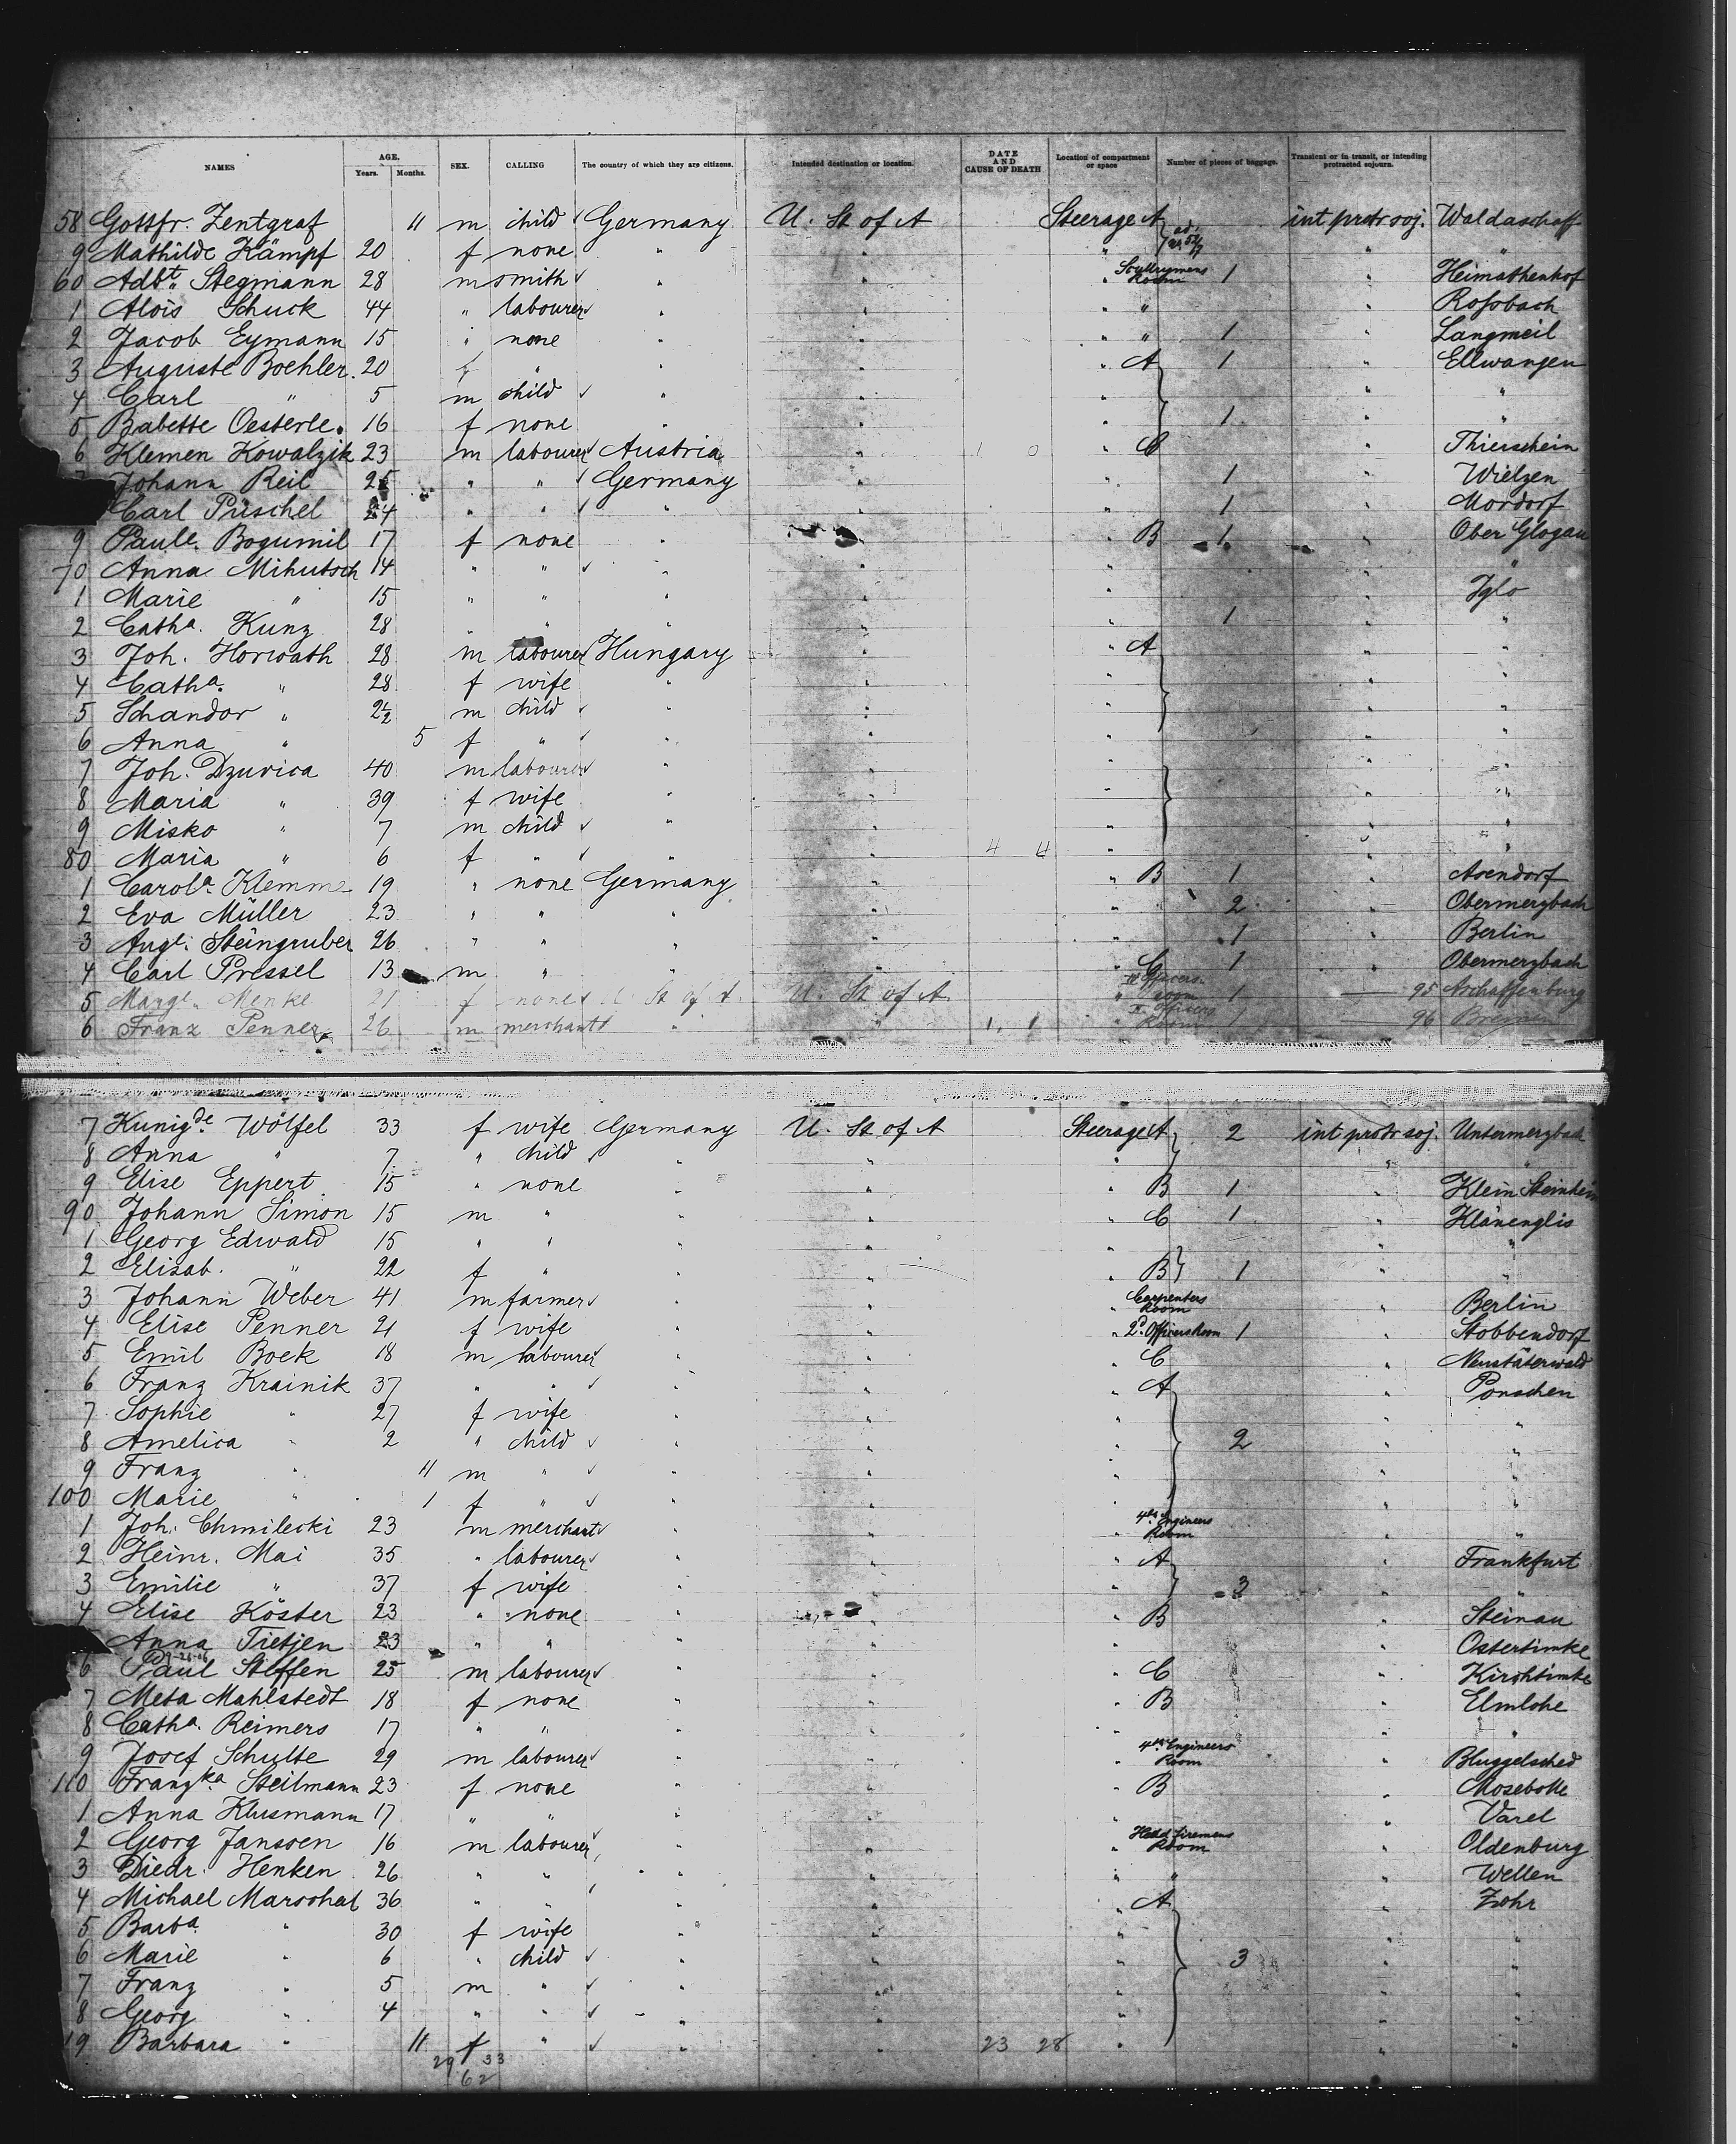 NAMES AGE. Years. Months. SEX. CALLING The country of which they are citizens. Intended destination or location. DATE AND CAUSE OF DEATH Location of compartment or space Number of pieces of baggage. Transient or in transit, or intending protracted sojourn.
58 Gottfr. Zentgraf 11 m child Germany U. St of A Steerage A int protr soj. Waldaschaff
9 Mathilde Kämpf 20 f none " " " " "
60 Adbt. Stegmann 28 m smith " " " Room 1 " Heimathenhof
1 Alois Schuck 44 " labourer " " " " " Roßbach
2 Jacob Eymann 15 " none " " " " 1 " Langmeil
3 Auguste Boehler 20 f " " " " A 1 " Ellwangen
4 Carl " 5 m child " " " " "
5 Babette Oesterle 16 f none " " " 1 " "
6 Klemen Kowalzik 23 m labourer Austria " 1 0 " C " Thierschein
Johann Reil 25 " " Germany " " 1 " Wielzen
Carl Püschel 24 " " " " " 1 " Mordorf
9 Paule. Bogumil 17 f none " " " B 1 " Ober Glogau
70 Anna Mihutsch 14 " " " " " " "
1 Marie " 15 " " " " " " Iglo
2 Catha. Kunz 28 " " " " " 1 " "
3 Joh. Horwath 28 m labourer Hungary " " A " "
4 Catha. " 28 f wife " " " " "
5 Schandor " 2½ m child " " " " "
6 Anna " 5 f " " " " " "
7 Joh. Dzurica 40 m labourer " " " " "
8 Maria " 39 f wife " " " " "
9 Misko " 7 m child " " " " "
80 Maria " 6 f " " " 4 4 " " "
1 Carola. Klemme 19 " none Germany " " B 1 " Asendorf
2 Eva Müller 23 " " " " " " 2 " Obermerzbach
3 Augt. Steingruber 26 " " " " " 1 " Berlin
4 Carl Pressel 13 m " " " " C 1 " Obermerzbach
5 Margt. Menke 21 f none U. St of A. U. St of A " Officers room 1 95 Aschaffenburg
6 Franz Penner 26 m merchant " " 1 1 Officers Room 1 96 Bremen
7 Kunigde. Wölfel 33 f wife Germany U. St of A Steerage A 2 int protr soj. Untermerzbach
8 Anna " 7 " child " " " " "
9 Elise Eppert 15 " none " " " B 1 " Klein Steinheim
90 Johann Simon 15 m " " " " C 1 " Klänenglis
1 Georg Edwald 15 " " " " " " "
2 Elisab. " 22 f " " " " B 1 " "
3 Johann Weber 41 m farmer " " " Carpenters Room " Berlin
4 Elise Penner 21 f wife " " " 2d. Officers Room 1 " Stobbendorf
5 Emil Boek 18 m labourer " " " C " Neustäterwald
6 Franz Krainik 37 " " " " " A " Ponschen
7 Sophie " 27 f wife " " " " "
8 Amelica " 2 " child " " " 2 " "
9 Franz " 11 m " " " " " "
100 Marie " 1 f " " " " " "
1 Joh. Chmilecki 23 m merchant " " " 4th Engineers Room " "
2 Heinr. Mai 35 " labourer " " " A " Frankfurt
3 Emilie " 37 f wife " " " 3 " "
4 Elise Köster 23 " none " " " B " Steinau
Anna Tietjen 23 " " " " " " Ostertimke
6 Paul Steffen 25 m labourer " " " C " Kirchtimke
7 Meta Mahlstedt 18 f none " " " B " Elmlohe
8 Catha. Reimers 17 " " " " " " "
9 Josef Schulte 29 m labourer " " " 4th Engineers Room " Bluggelsched
110 Franzka. Steilmann 23 f none " " " B " Mosebolle
1 Anna Klusmann 17 " " " " " " Varel
2 Georg Janssen 16 m labourer " " " Head Firemens Room " Oldenburg
3 Diedr. Henken 26 " " " " " " " Wellen
4 Michael Marschal 36 " " " " " A " Zohr
5 Barba. " 30 f wife " " " " "
6 Marie " 6 " child " " " 3 " "
7 Franz " 5 m " " " " " "
8 Georg " 4 " " " " " " "
19 Barbara " 11 f " " " 23 28 " " "
29 33
62